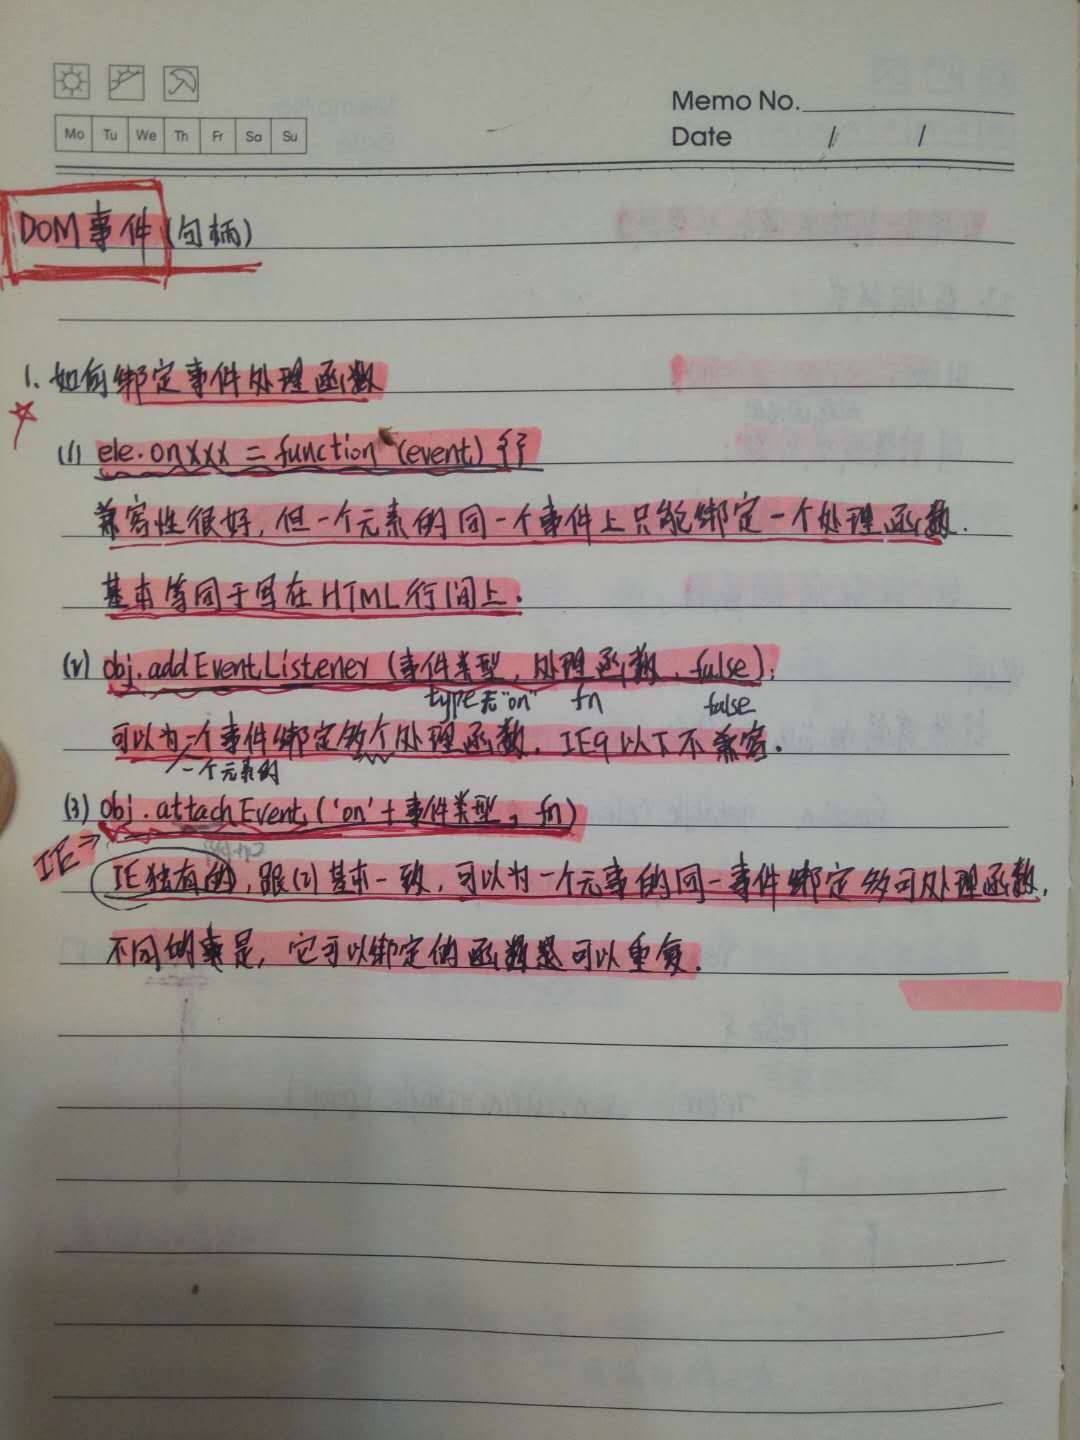 Memo No.
Mo Tu We Th Fr Sa Su
Date / /
DOM事件(句柄)
1. 如何绑定事件处理函数
(1) ele.onxxx = function (event) {}
兼容性很好,但一个元素的同一个事件上只能绑定一个处理函数.
基本等同于写在HTML行间上.
(2) obj.addEventListener(事件类型, 处理函数, false);
type无"on" fn false
可以为一个事件绑定多个处理函数. IE9以下不兼容.
一个元素的
(3) obj.attachEvent('on'+事件类型, fn)
IE→
IE独有的, 跟(2)基本一致, 可以为一个元素的同一事件绑定多可处理函数,
不同的是, 它可以绑定的函数是可以重复.